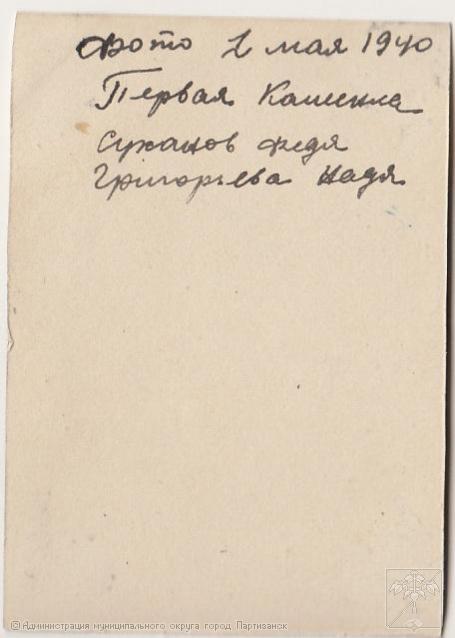 Фото 1 мая 1940
Первая Каменка
Суханов Федя
Григорьева Надя
© Администрация муниципального округа город Партизанск